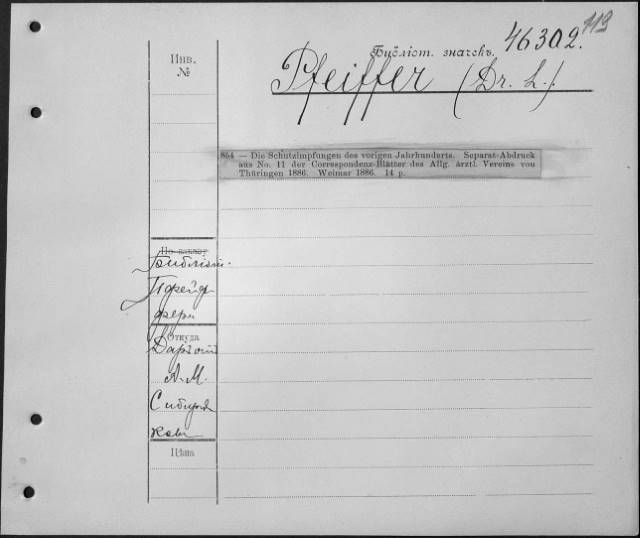 113
Библіот. значекъ. 46302.
Инв.
№
Pfeiffer (Dr. L.)
854 — Die Schutzimpfungen des vorigen Jahrhunderts. Separat-Abdruck
aus No. 11 der Correspondenz-Blätter des Allg. ärztl. Vereins von
Thüringen 1886. Weimar 1886. 14 p.
Библіот.
Пфейф
фера
Откуда
Даръ отъ
А. М.
Сибиря
кова
Цѣна